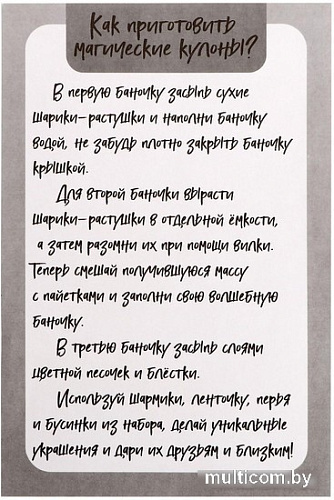 Как приготовить
магические кулоны?
В первую баночку засыпь сухие
шарики-растушки и наполни баночку
водой, не забудь плотно закрыть баночку
крышкой.
Для второй баночки вырасти
шарики-растушки в отдельной ёмкости,
а затем разомни их при помощи вилки.
Теперь смешай получившуюся массу
с пайетками и заполни свою волшебную
баночку.
В третью баночку засыпь слоями
цветной песочек и блёстки.
Используй шармики, ленточку, перья
и бусинки из набора, делай уникальные
украшения и дари их друзьям и близким!
multicom.by